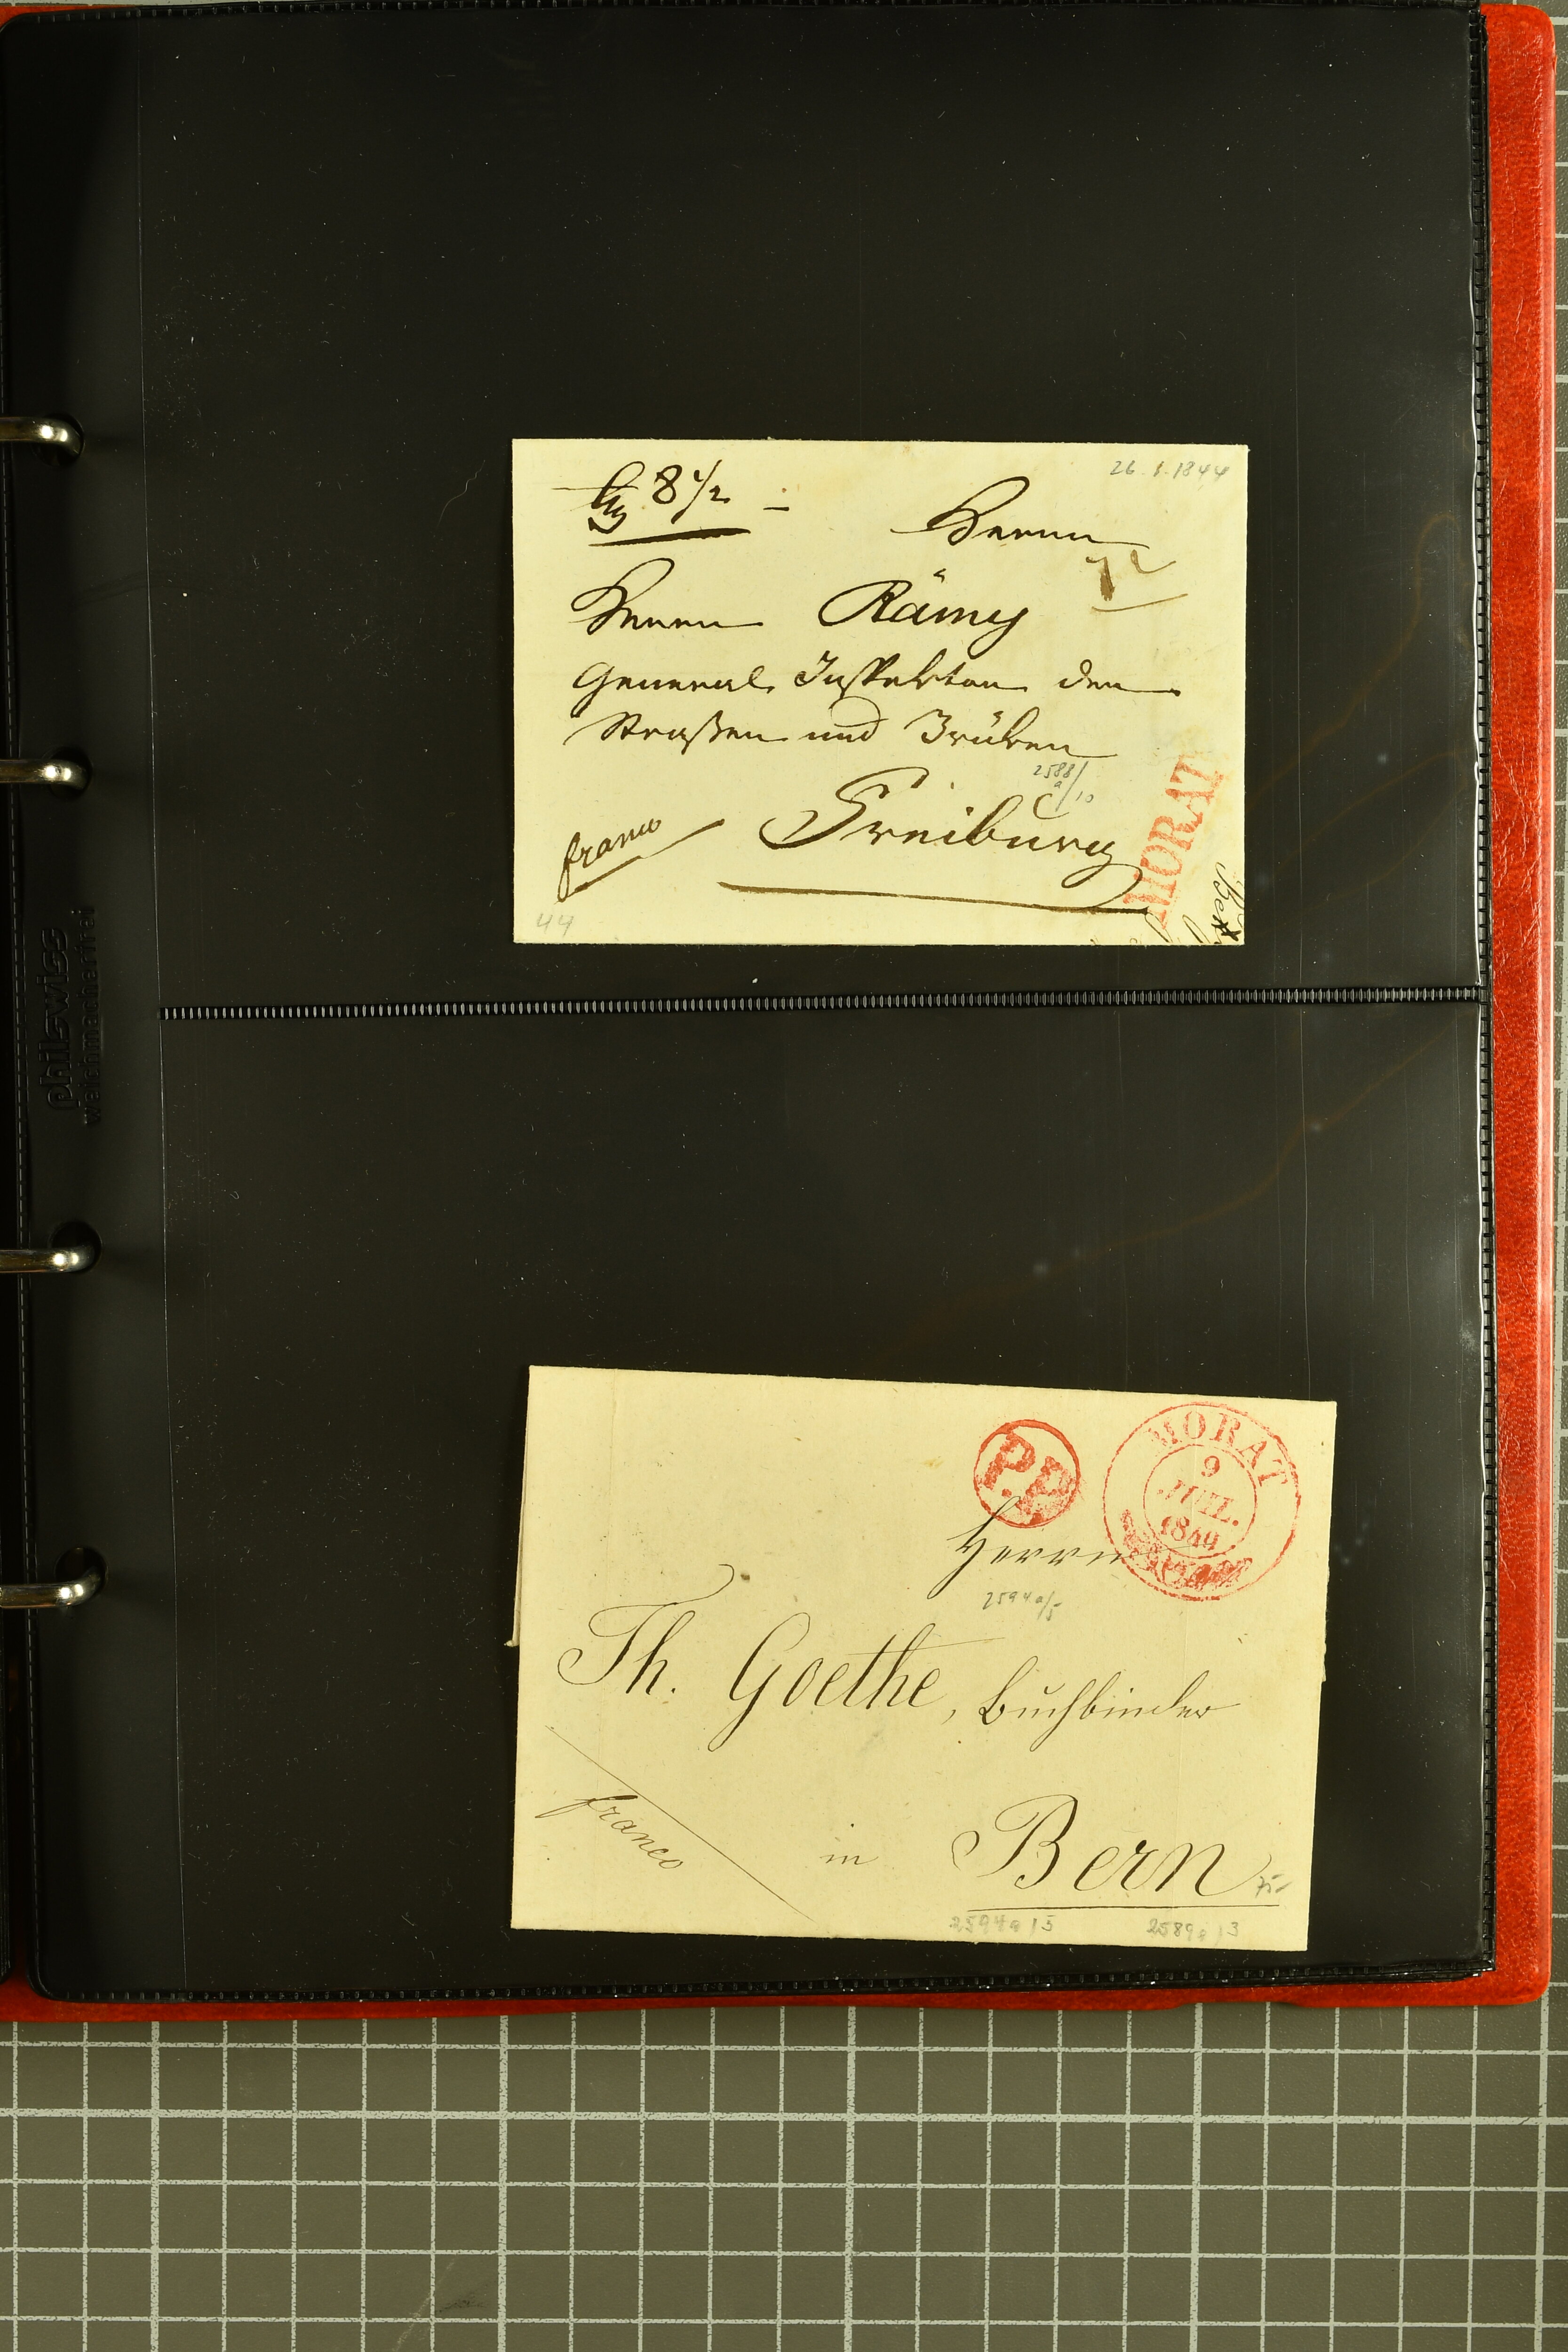 8 1/2 -
26.1.1844
Herrn
Herrn Rämy
General Inspektor der
Strassen und Brüken
2588
a/10
C
Freiburg
franco
MORAT
44
philswiss
P.P.
MORAT
9
JUIL.
1849
Herrn
2594a/5
Th. Goethe, Buchbinder
franco
in Bern
75.-
2594a/5
2589a/3